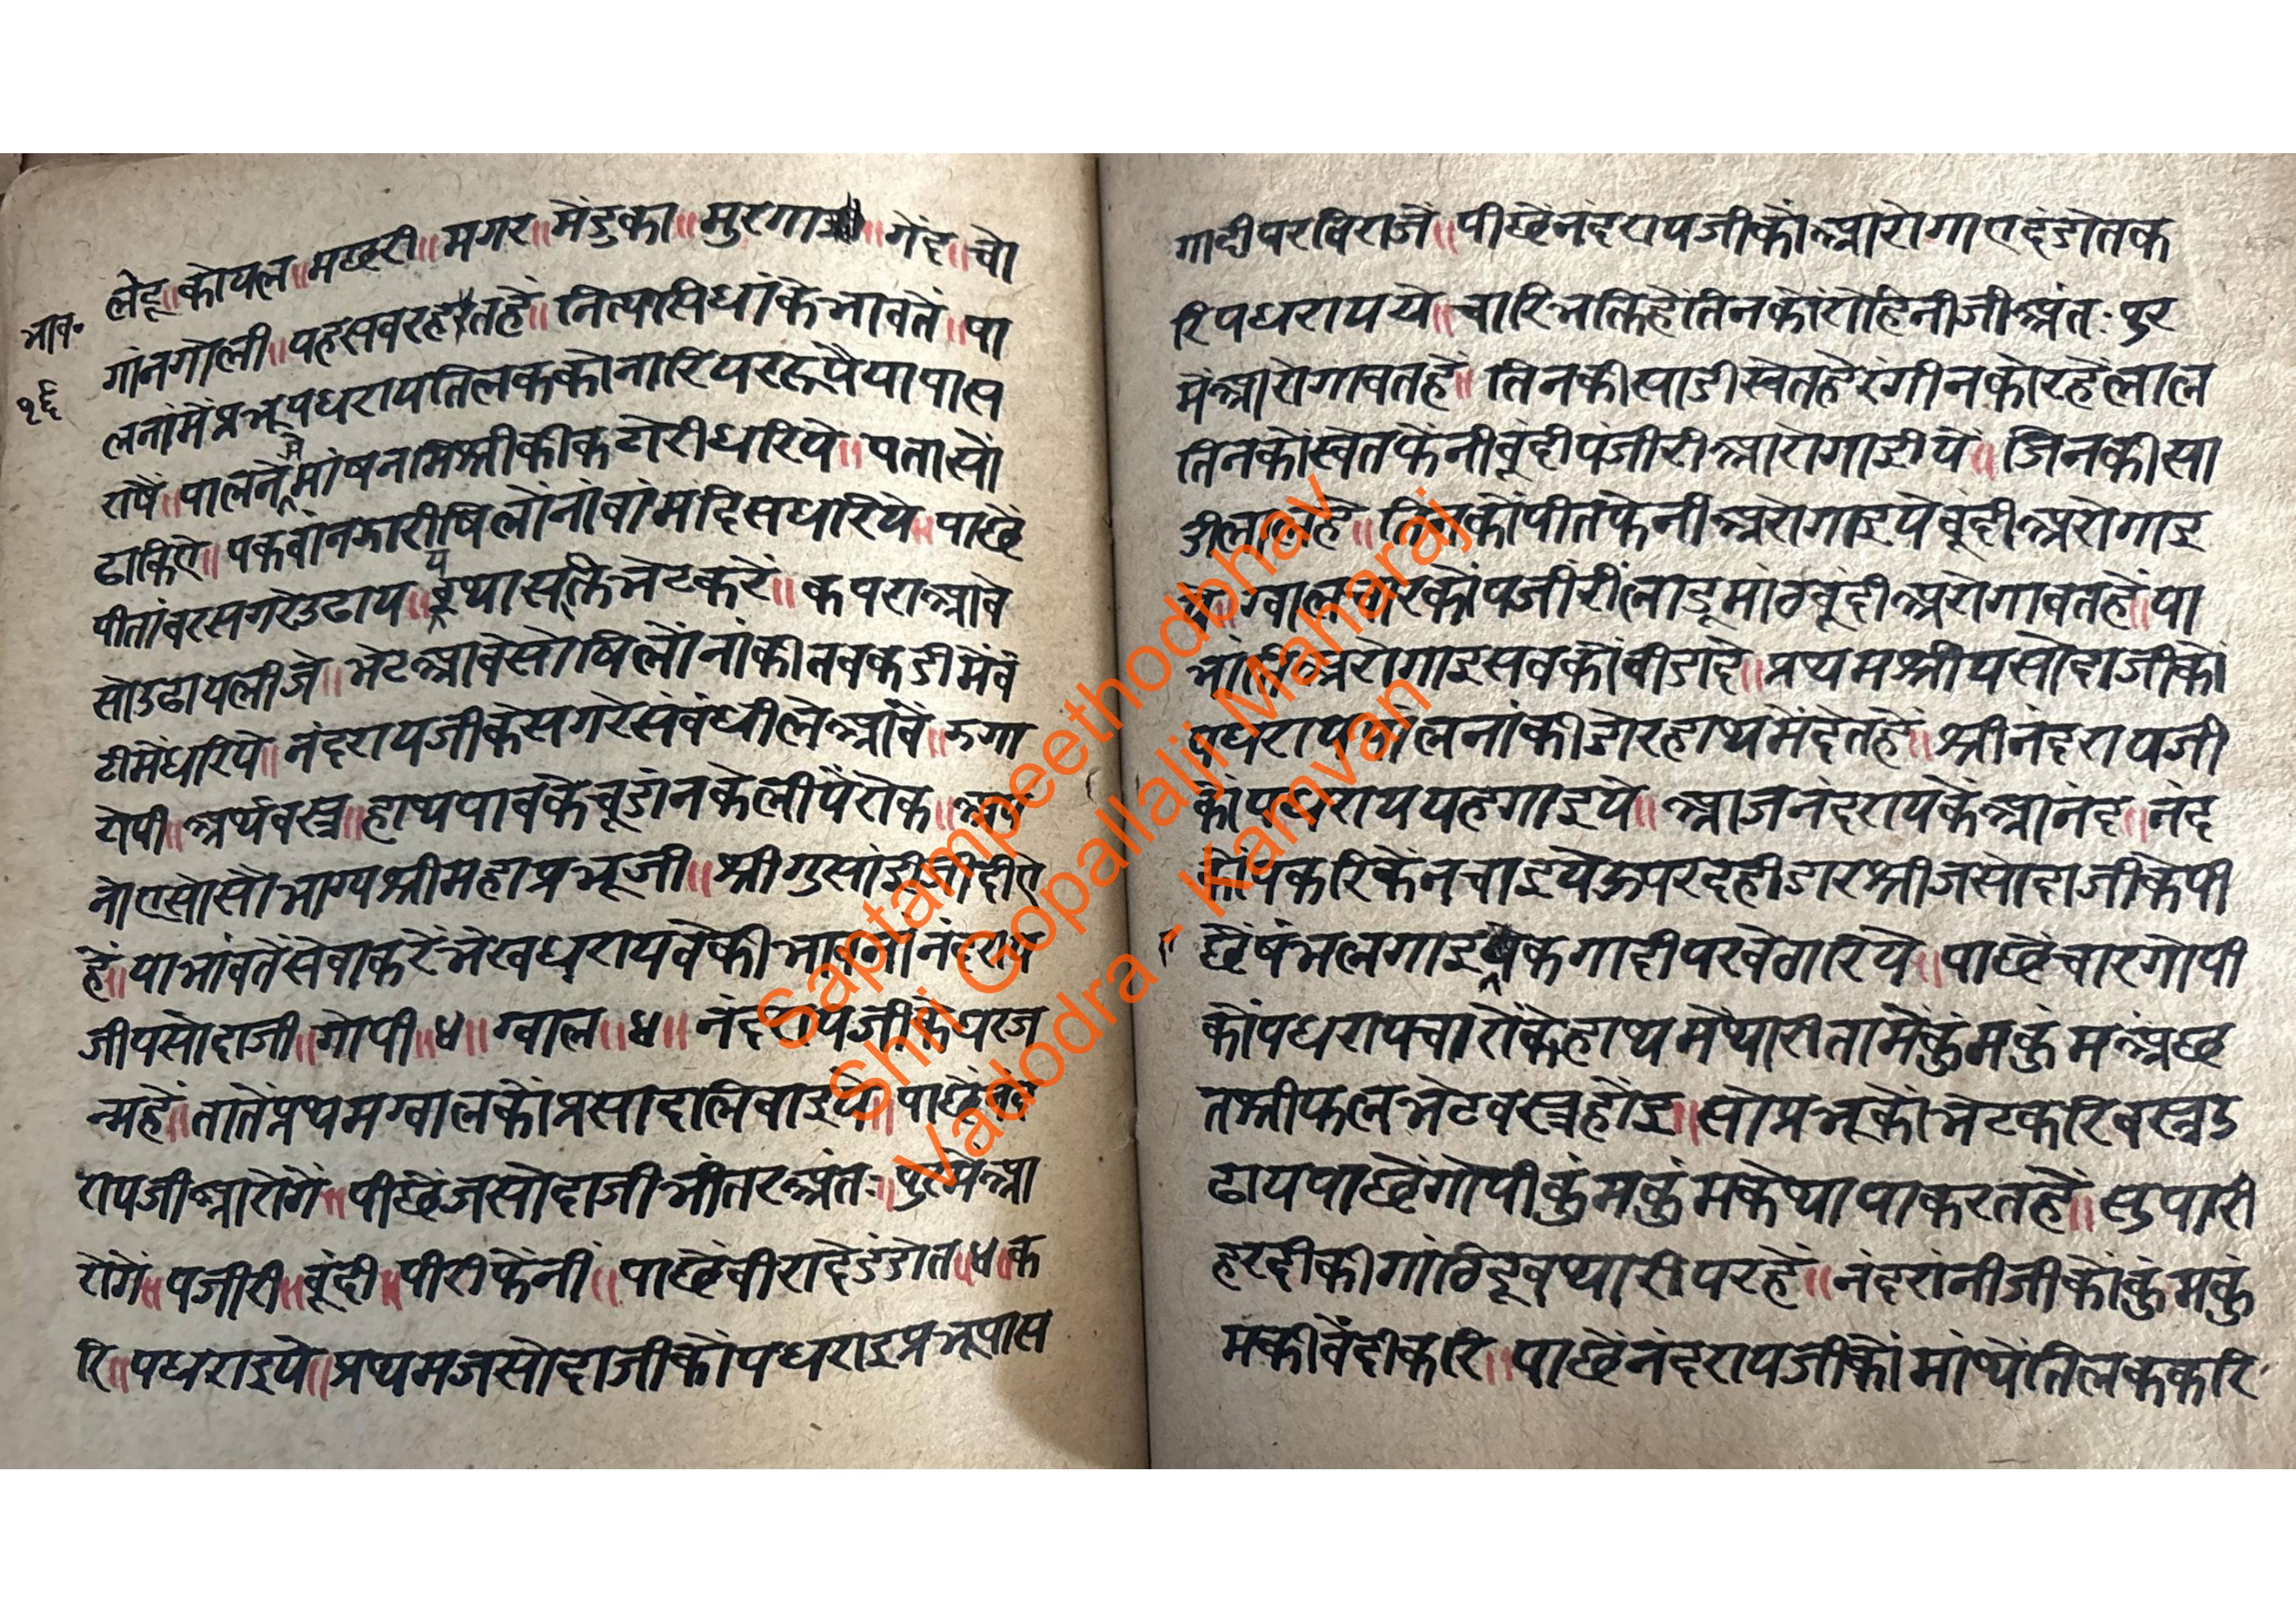 भाव॰
१६
लेहू॥कोयल॥मछरी॥मगर॥मेंडुका॥मुरगा॥गेंद॥चो
गांनगोली॥यहसबरहतहें॥नित्यसिधांकेभावतें॥पा
लनांमेंप्रभूपधरायतिलककोनारियररूपैयापास
राषें॥पालनेमेंमांषनमिश्रीकीकटोरीधरिये॥बतासों
ढाकिऐ॥पकवांनझारीषिलोंनांबांमदिसधरिये॥पाछें
पीतांबरसगरेउढाय॥यथासक्तिभेटकरें॥कपराआवे
सोउढायलीजे॥भेटआवेसोषिलोंनांकीतबकडीमेंवं
टीमेंधरिये॥नंदरायजीकेसगरेसंबंधीलेआंवें॥झगा
टोपी॥अर्थवस्त्र॥हाथपावकेचूडांनकेलीयेंरोक॥अप
नोएसोसौभाग्यश्रीमहाप्रभूजी॥श्रीगुसांईजीदीऐ
हें॥याभांवतेंसेवाकरेंभेखधरायवेकीभावसोंनंदराय
जीयसोदाजी॥गोपी॥४॥ग्वाल॥४॥नंदरायजीकेघरज
न्महें॥तातेंप्रथमग्वालकोंप्रसादलिवाइये॥पाछेंनंद
रायजीआरोगें॥पीछेंजसोदाजीभीतरअंतःपुरमेंआ
रोगें॥पजीरी॥बूंदी॥पीरीफेंनीं॥पाछेंबीरादेडंडोत॥४॥क
रि॥पधराइये॥प्रथमजसोदाजीकोंपधराइप्रभूपास
गादीपरबिराजें॥पीछेंनंदरायजीकोंआरोगाएदंडोतक
रिपधरायये॥चारिभक्तिहेंतिनकोंरोहिनीजीअंतःपुर
मेंआरोगावतहें॥तिनकीसाडीस्वेतहेरंगीनकोरहेंलाल
तिनकोंस्वेतफेंनीबूंदीपंजीरीआरोगाईये॥जिनकीसा
डीलालहे॥तिनकोंपीतफेनीअरोगाइयेबूंदीअरोगाइ
ये॥ग्वालचारकोंपजीरीलाडूमांठबूंदीअरोगावतहें॥या
भांतिअरोगाइसबकोंबीडादे॥प्रथमश्रीयसोदाजीको
पधरायपालनांकीडोरहाथमेंदेतहें॥श्रीनंदरायजी
कोंपधराययहगाइये॥आजनंदरायकेंआनंद॥नंद
कोंपकरिकेंनचाइयेऊपरदहीडारश्रीजसोदाजीकेपी
छेंषंभलगाइकेंएकगादीपरबेठारिये॥पाछेंचारगोपी
कोंपधरायचारोंकेहाथमेंथारीतामेंकुंमकुंमअछ
तश्रीफलभेटवस्त्रहोंइ॥सोप्रभूकोंभेटकरिवस्त्रउ
ढायपाछेंगोपीकुंमकुंमकेथापाकरतहें॥सुपारी
हरदीकीगांठिदूबथारीपरहें॥नंदरांनीजीकोंकुंमकुं
मकीबेंदीकरि॥पाछेंनंदरायजीकोंमांथेंतिलककरि
Saptampeethodbhav
Shri Gopallalji Maharaj
Vadodra - Kamvan